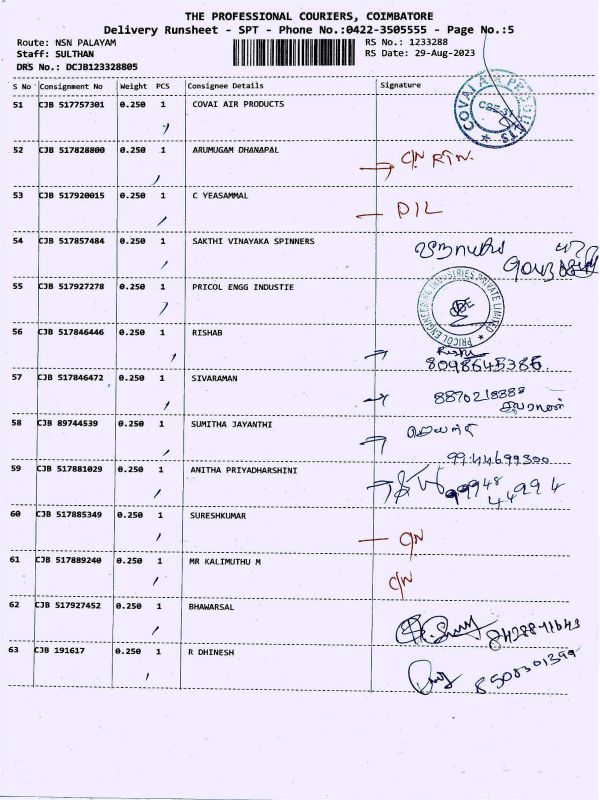 THE PROFESSIONAL COURIERS, COIMBATORE
Delivery Runsheet - SPT - Phone No.:0422-3505555 - Page No.:5
Route: NSN PALAYAM RS No.: 1233288
Staff: SULTHAN RS Date: 29-Aug-2023
DRS No.: DCJB123328805
S No Consignment No Weight PCS Consignee Details Signature
51 CJB 517757301 0.250 1 COVAI AIR PRODUCTS
COVAI AIR PRODUCTS
CBE-31
52 CJB 517828800 0.250 1 ARUMUGAM DHANAPAL
C/N RTN.
53 CJB 517920015 0.250 1 C YEASAMMAL
D/L
54 CJB 517857484 0.250 1 SAKTHI VINAYAKA SPINNERS
55 CJB 517927278 0.250 1 PRICOL ENGG INDUSTIE
PRICOL ENGINEERING INDUSTRIES PRIVATE LIMITED
CBE
56 CJB 517846446 0.250 1 RISHAB
8098645386
57 CJB 517846472 0.250 1 SIVARAMAN
8870218888
சிவராமன்
58 CJB 89744539 0.250 1 SUMITHA JAYANTHI
ஜெயந்தி
9944699300
59 CJB 517881029 0.250 1 ANITHA PRIYADHARSHINI
99948
44994
60 CJB 517885349 0.250 1 SURESHKUMAR
C/N
61 CJB 517889240 0.250 1 MR KALIMUTHU M
C/N
62 CJB 517927452 0.250 1 BHAWARSAL
63 CJB 191617 0.250 1 R DHINESH
8508301399